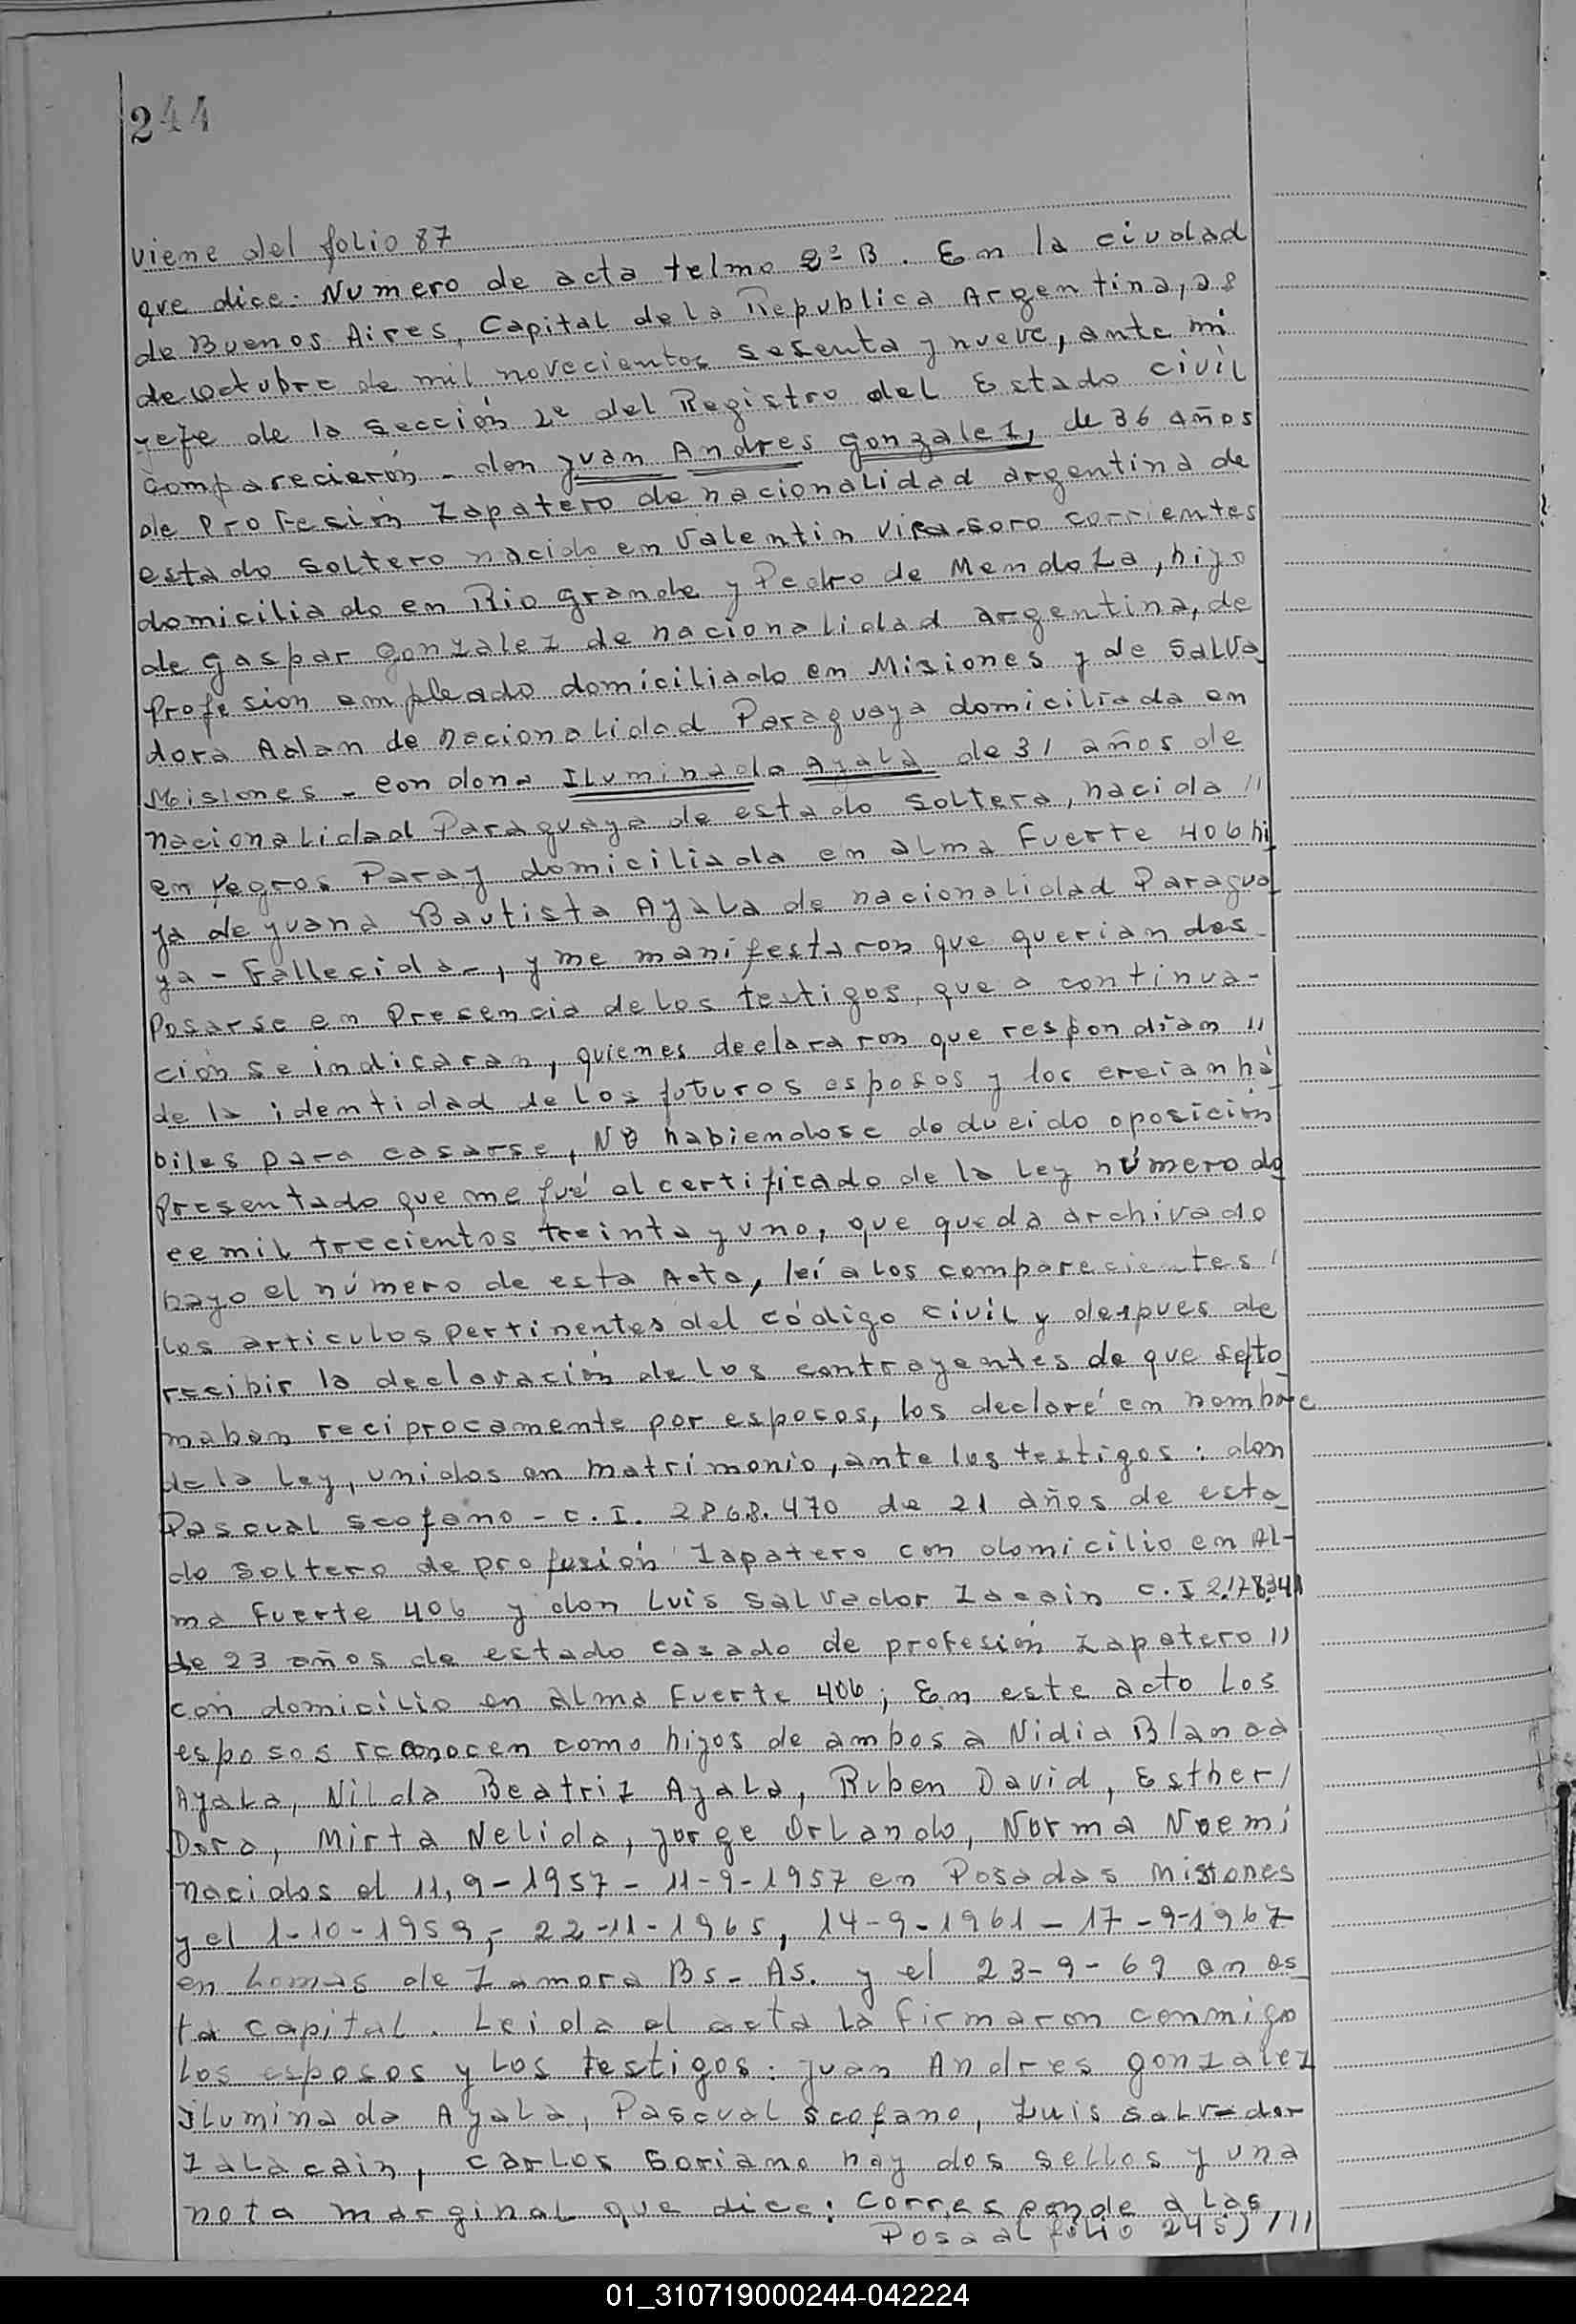 244
viene del folio 87
que dice: Numero de acta telmo 2º B. En la ciudad
de Buenos Aires, Capital de la Republica Argentina, a 8
de octubre de mil novecientos sesenta y nueve, ante mi
yefe de la sección 2º del Registro del Estado civil
comparecierón - don yuan Andres gonzalez, de 36 años
de Profesión zapatero de nacionalidad argentina de
estado soltero nacido en Valentin Vira-soro corrientes
domiciliado en Rio grande y Pedro de Mendoza, hijo
de gaspar gonzalez de nacionalidad argentina, de
Profesion empleado domiciliado en Misiones y de Salva
dora Adan de nacionalidad Paraguaya domiciliada en
Misiones - con dona Iluminada Ayala de 31 años de
nacionalidad Paraguaya de estado soltera, nacida //
en yegros Paray domiciliada en alma Fuerte 406 hi
ja de yuana Bautista Ayala de nacionalidad Paragua
ya - Fallecida -, y me manifestaron que querian des-
Posarse en Presencia de los testigos, que a continua-
ción se indicaran, quienes declararon que respondian //
de la identidad de los futuros esposos y los creian há
biles para casarse, No habiendose deducido oposición
Presentado que me fué el certificado de la Ley número do
ce mil trecientos treinta y uno, que queda archivado
bayo el número de esta Acta, leí a los comparecientes /
los articulos pertinentes del código civil y despues de
recibir la declaración de los contrayentes de que se/to
maban reciprocamente por esposos, los declaré en nombre
de la Ley, unidos en matrimonio, ante los testigos: don
Pascual Scofano - C.I. 2868.470 de 21 años de esta
do soltero de profesión zapatero con domicilio en Al-
ma Fuerte 406 y don Luis Salvador C.I
de 23 años de estado casado de profesión zapatero //
con domicilio en alma Fuerte 406; En este acto Los
esposos reconocen como hijos de ambos a Nidia Blanca
Ayala, Nilda Beatriz Ayala, Ruben David, Esther /
Dora, Mirta Nelida, yorge Orlando, Norma Noemi
nacidos el 11,9-1957 - 11-9-1957 en Posadas Misiones
y el 1-10-1959,- 22-11-1965, 14-9-1961 - 17-9-1967
en Lomas de Zamora Bs-As. y el 23-9-69 en es
ta capital. Leida el acta la firmaron conmigo
los esposos y los testigos: yuan Andres gonzalez
Iluminada Ayala, Pascual Scofano, Luis Salvador
Zalacain, Carlos Soriano hay dos sellos y una
nota marginal que dice: Corresponde a las
Pasa al folio 245) ///
01_310719000244-042224